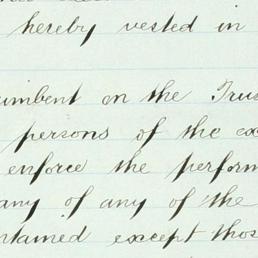 hereby vested in
umbent on the Trus
persons of the ex
enforce the perform
any of any of the
ntained except thos